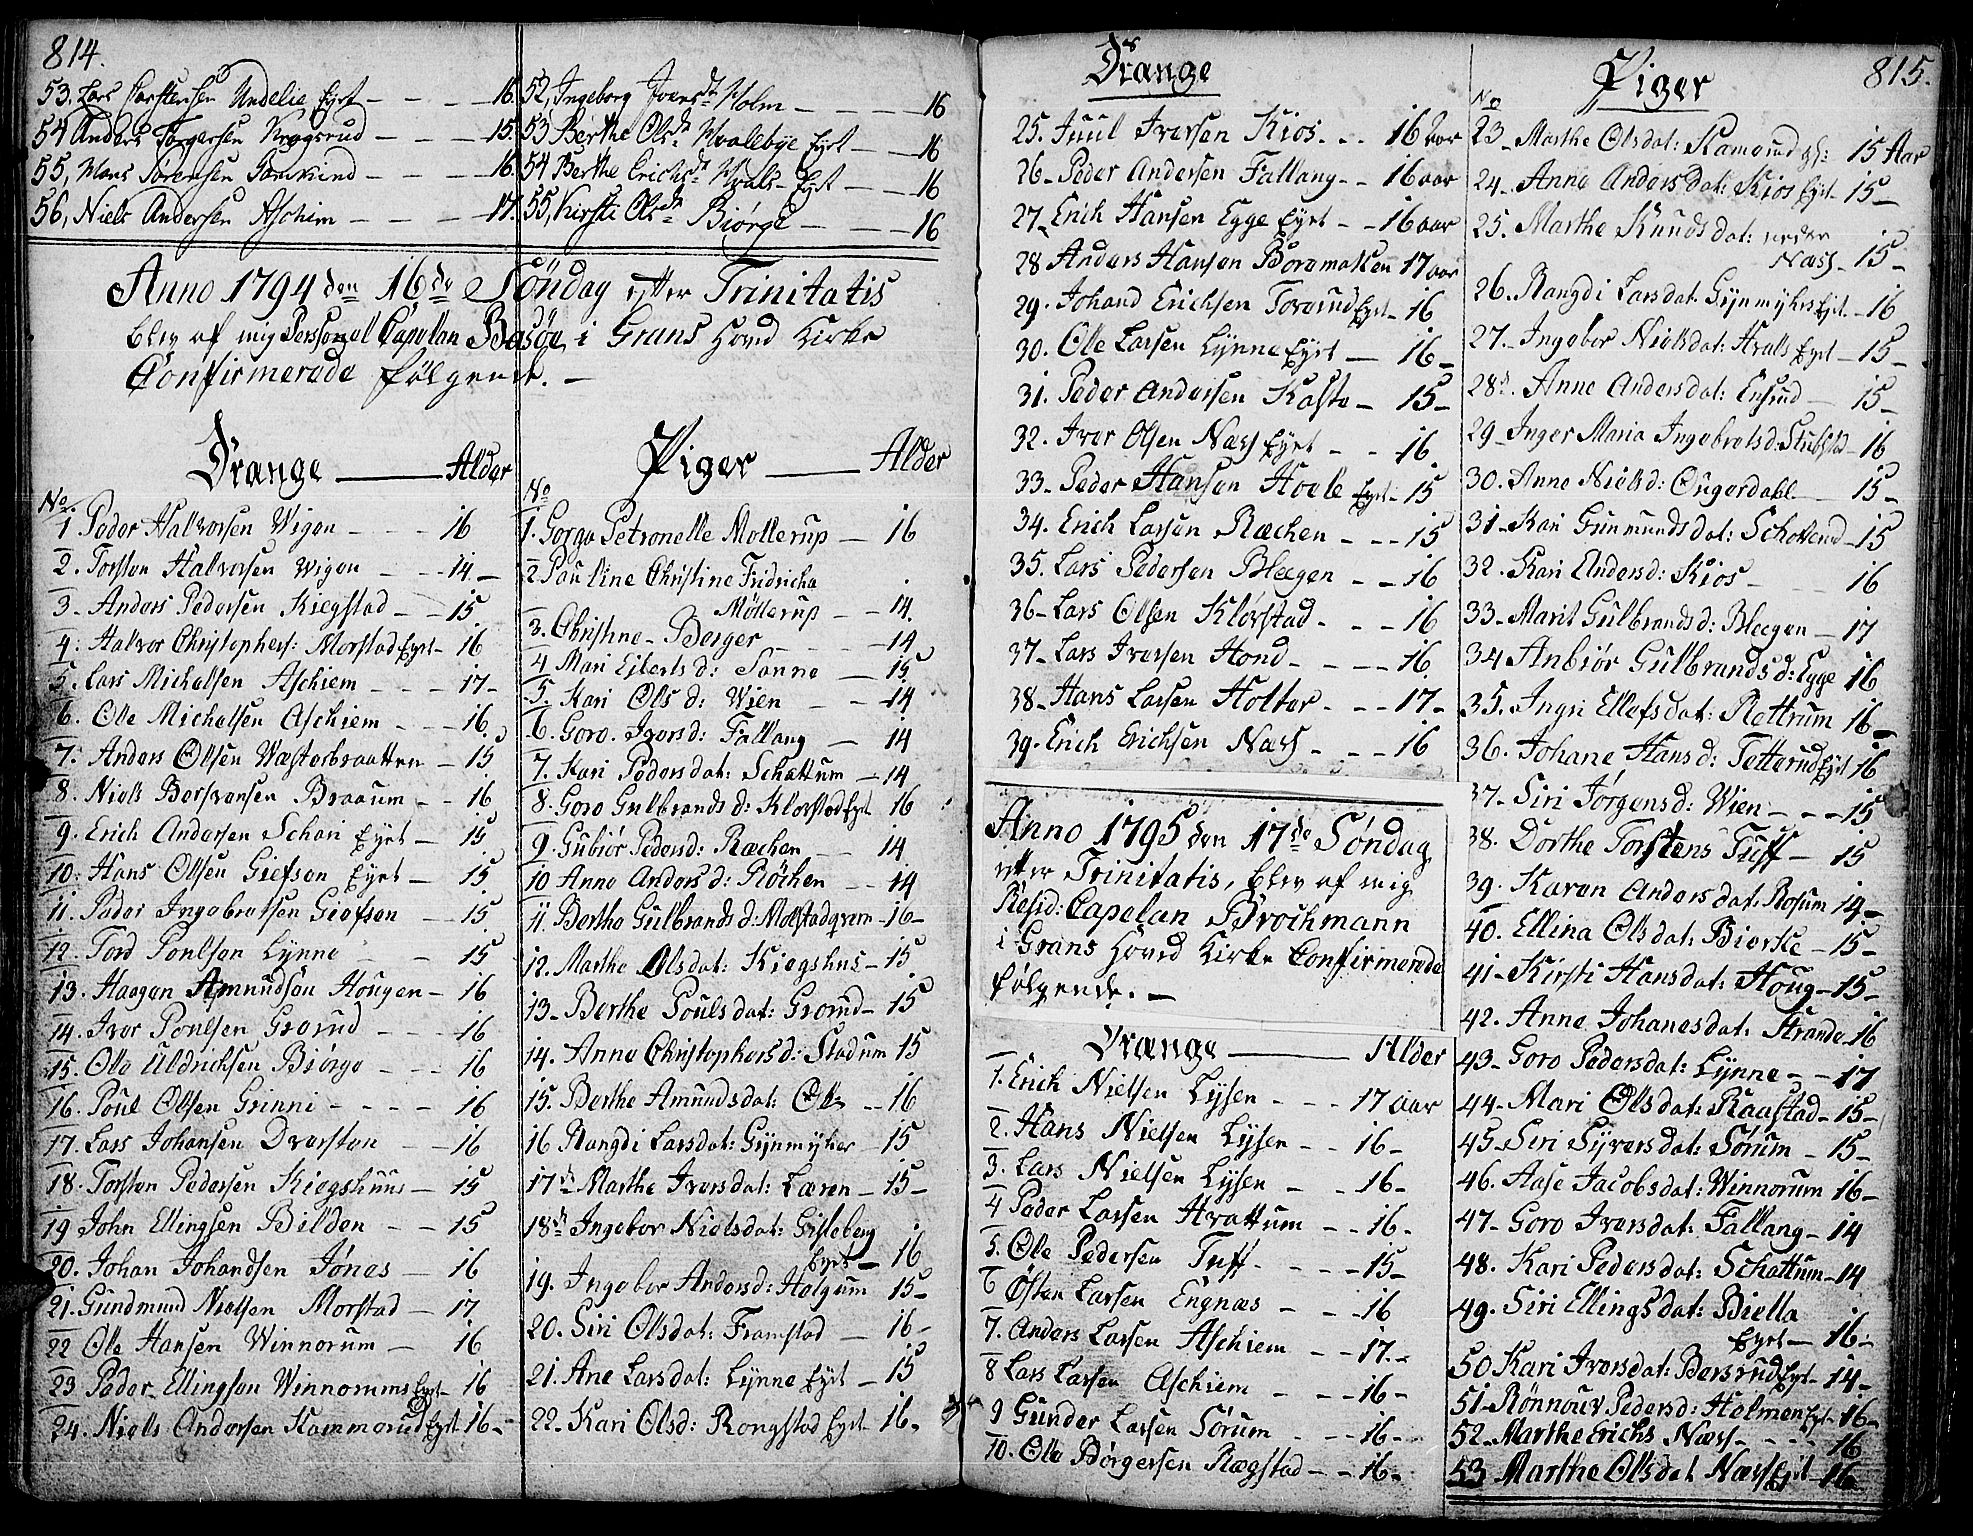 814.
53, Lars Carstensen Undelie Eyet — 16.
54 Anders Torgersen Krogsrud — 15.
55, Hans Sörensen — 16.
56, Niels Andersen Aschim — 17.
52, Ingeborg Iversdr Holm — 16
53 Berthe Olsdr Hvalebye Eyet — 16
54 Berthe Erichsdr Hvals-Eyet — 16
55, Kirsti Olsdr Biørge — 16
Anno 1794 den 16de Söndag efter Trinitatis
blev af mig Personel Capellan Basöe i Grans Hoved Kirke
Confirmerede følgende. —
Drænge — Alder
No
1 Peder Halvorsen Wigen — 16
2. Torsten Halvorsen Wigen — 14. —
3 - Anders Pedersen Kiegstad — 15
4: Halvor Christophers: Morstad Eyet — 16
5. Lars Michelsen Aschiem — 17 -
6. Ole Michelsen Aschiem — 16.
7: Anders Olsen Wæsterbraatten — 15
8. Niels Bersvensen Braaum — 16
9. Erich Andersen Schari Eyet — 15
10: Hans Olsen Giefsen Eyet — 15
11. Peder Ingebretsen Giefsen — 15
12. Tord Poulsen Lynne — 15
13. Haagen Amundsøn Hougen — 16
14. Iver Poulsen Grorud — 16
15. Ole Uldrichsen Biørge — 16
16. Poul Olsen Grinni — 16
17. Lars Johansen Dværsten — 16
18. Torsten Pedersen Kiegshuus — 15
19 John Ellingsen Bilden — 15
20. Johan Johansen Jønes — 16
21. Gundmund Nielsen Morstad — 17
22 Ole Hansen Winnorum — 16
23 Peder Ellingsen Winnorums Eyet — 16
24. Niels Andersen Hammerud Eyet — 16 -
Piger — Alder
No
1. Gorga Petronelle Mollerup — 16
2 Pauline Christine Fridricha
Möllerup — 14.
3. Christine Berger — 14
4 Mari Ejlertsd: Sanne — 15
5. Kari Olsd: Wien — 14
6. Goro Iversd: Fallang — 14
7. Kari Pedersdat: Schattum — 14
8. Goro Gulbrandsd: Klovstad Eyet 16
9. Gubiør Pedersd: Rœchen — 14
10 Anne Andersd: Röchen — 14
11. Berthe Gulbrandsd: Molstadqvern — 16 -
12. Marthe Olsdat: Kiegshus — 15
13. Berthe Poulsdat: Grorud — 15
14. Anne Christophersd: Stadum 15
15. Berthe Amundsdat: — 16
16 Rangdi Larsdat: Gynmyhr 15
17 Marthe Iversdat: Læren — 15 -
18 Ingebor Nielsdat: Gisleberg
Eyet — 16
19. Ingebor Andersd: Helgum 15 -
20. Siri Olsdat: Framstad — 16 -
21. Ane Larsdat: Lynne Eyet — 15
22. Kari Olsd: Rongstad Eyet — 16 -
Drænge
25. Juul Iversen Kios — 16 aar
26 - Peder Andersen Fallang — 16 aar
27 - Erich Hansen Egge Eyet — 16 aar
28 Anders Hansen 17 aar
29. Johand Erichsen Eyet — 16
30. Ole Larsen Lynne Eyet — 16 -
31. Peder Andersen Kaste — 15 -
32. Iver Olsen Næss Eyet — 16
33 - Peder Hansen Hoele Eyet — 15
34. Erich Larsen Ræchen — 15
35. Lars Pedersen Bleegen — 16
36 - Lars Olsen Klövstad — 16
37 - Lars Iversen Hond — 16
38 - Hans Larsen Holter — 17 -
39. Erich Erichsen Næss — 16
Anno 1795 den 17de Söndag
efter Trinitatis, blev af mig
Resid: Capelan Brochmann
i Grans Hoved Kirke Confirmerede
følgende. —
Drænge — Alder
1. Erich Nielsen Lysen — 17 aar
2. Hans Nielsen Lysen — 16 -
3. Lars Nielsen Lysen — 16 -
4 Peder Larsen Hvattum — 16 -
5. Ole Pedersen Tuff — 15 -
6 Østen Larsen Engnæs — 16
7. Anders Larsen Aschiem — 17 -
8 Lars Larsen Aschiem — 16 -
9 Gunder Larsen Sörum — 16 -
10. Ole Börgersen Rægstad — 16 -
Piger
815.
No
23 - Marthe Olsdat: Ramerud 15 Aar
24. Anne Andersdat: Kios Eyet 15 -
25. Marthe Knudsdat: neder
Næss — 15 -
26. Rangdi Larsdat: Gynmyhr Eyet — 16
27. Ingebor Nielsdat: Hvals Eyet — 15 -
28. Anne Andersdat: Ensrud — 15 -
29 - Inger Maria Ingebretsd: — 16
30. Anne Nielsd: — 15 -
31 - Kari Gunmundsdat: — 15
32. Kari Andersd: Kios — 16
33 - Marit Gulbrandsd: Bleegen — 17
34 Anbiør Gulbrandsd: Egge 16
35. Ingri Ellefsdat: Rettrum 16 -
36. Johane Hansd: Tetterud Eyet 16
37 - Siri Jørgensd: Wien — 15
38. Dorthe Torstens Tuff — 15
39. Karen Andersdat: Rosum 14 -
40. Ellina Olsdat: Bierke — 15 -
41 - Kirsti Hansdat: Houg — 15 -
42. Anne Johanesdat: Strande 16
43 - Goro Pedersdat: Lynne — 17
44 - Mari Olsdat: Raastad — 15 -
45 - Siri Syversdat: Sörum — 15 -
46. Aase Jacobsdat: Winnorum 16 -
47 - Goro Iversdat: Fallang — 14
48. Kari Pedersdat: Schattum — 14
49. Siri Ellingsdat: Biella
Eyet — 16 -
50 Kari Iversdat: Bersrud Eyet — 14 -
51 - Rönnouv Pedersd: Helmen Eyet — 16 -
52 - Marthe Erichs Næss — 16
53 Marthe Olsdat Næss Eyet — 16 -